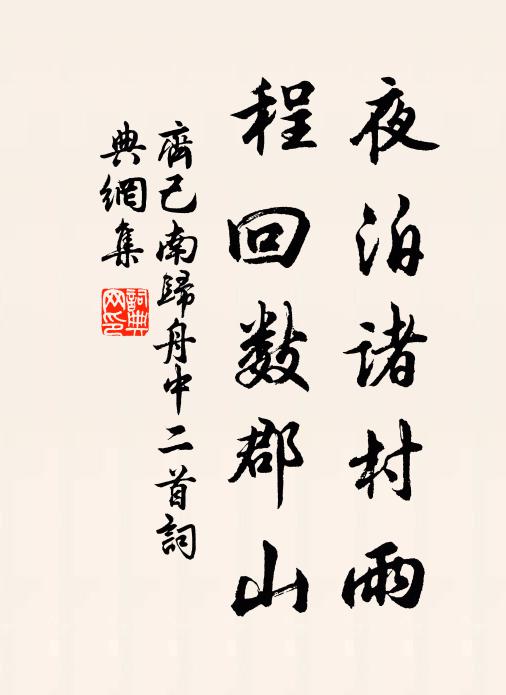 夜泊诸村雨
程回数郡山
齊己南歸舟中二首詞
典網集
詞典
网印